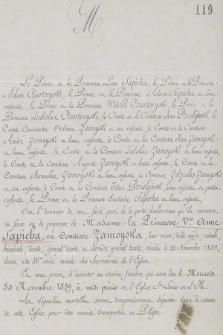 119
M
Le Prince et la Princesse Léon Sapieha, le Prince et la Princesse
Adam Czartoryski, le Prince et la Princesse Adam Sapieha et leurs
enfants, le Prince et la Princesse Witold Czartoryski, le Prince et la
Princesse Ladislas Czartoryski, le Comte et la Comtesse
Comte Constantin Zamoyski et ses enfants, le Comte et la Comtesse
André Zamoyski et leurs enfants, le Comte et la Comtesse Jean Zamoyski
et leurs enfants, le Comte et la Comtesse Ladislas Zamoyski et leurs enfants,
le Comte et la Comtesse Auguste Zamoyski et leurs enfants, le Comte et la
Comtesse Zamoyski et leurs enfants, le Comte Zdzislas Zamoyski
et ses enfants, le Comte et la Comtesse Titus Działyński, leurs enfants et petits-
enfants, le Prince et la Princesse Sapieha et leurs enfants,
Ont l'honneur de vous faire part de la perte douloureuse qu'ils viennent
de faire en la personne de Madame la Princesse Vve Anne
Sapieha, née Comtesse Zamoyska, leur mère, belle-mère, grand'mère,
tante, grand'tante et arrière grand'tante, décédée le 26 Novembre 1859,
dans sa année, munie des Sacrements de l'Eglise.
Et vous prient d'assister au service funèbre qui aura lieu le Mercredi
30 Novembre 1859, à midi précis en l'Eglise
Les dépouilles mortelles seront temporairement déposées dans les caveaux
de cette Eglise, pour être ensuite transportées en Pologne.